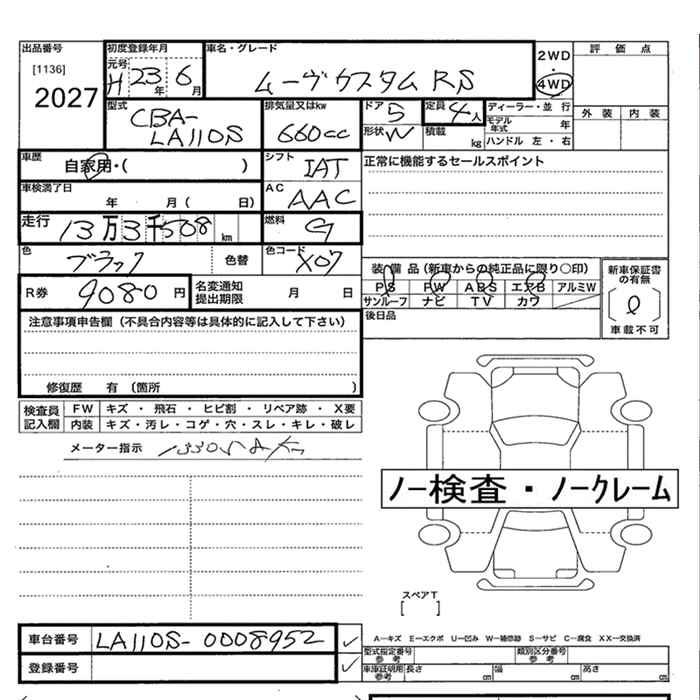 出品番号
[1136]
2027
初度登録年月
元号
H 23年 6月
車名・グレード
ムーヴカスタム RS
2WD
・
4WD
評価点
外装 内装
型式
CBA-
LA110S
排気量又はkw
660cc
ドア 5
形状 W
定員 4人
積載 kg
ディーラー・並行
モデル年式 年
ハンドル 左・右
車歴
自家用・( )
シフト
IAT
正常に機能するセールスポイント
車検満了日
年 月( 日)
AC
AAC
走行 13万3千508km
燃料
G
色
ブラック
色替
色コード
X07
装備品(新車からの純正品に限り○印)
PS PW ABS エアB アルミW
サンルーフ ナビ TV カワ
新車保証書の有無
車載不可
R券 9080円
名変通知
提出期限
月 日
後日品
注意事項申告欄(不具合内容等は具体的に記入して下さい)
修復歴 有(箇所 )
検査員
記入欄
FW キズ・飛石・ヒビ割・リペア跡・X要
内装 キズ・汚レ・コゲ・穴・スレ・キレ・破レ
メーター指示
ノー検査・ノークレーム
スペアT
[ ]
車台番号 LA110S-0008952
登録番号
A—キズ E—エクボ U—凹み W—補修跡 S—サビ C—腐食 XX—交換済
型式指定番号
参考
類別区分番号
参考
車庫証明用
参考
長さ cm 幅 cm 高さ cm